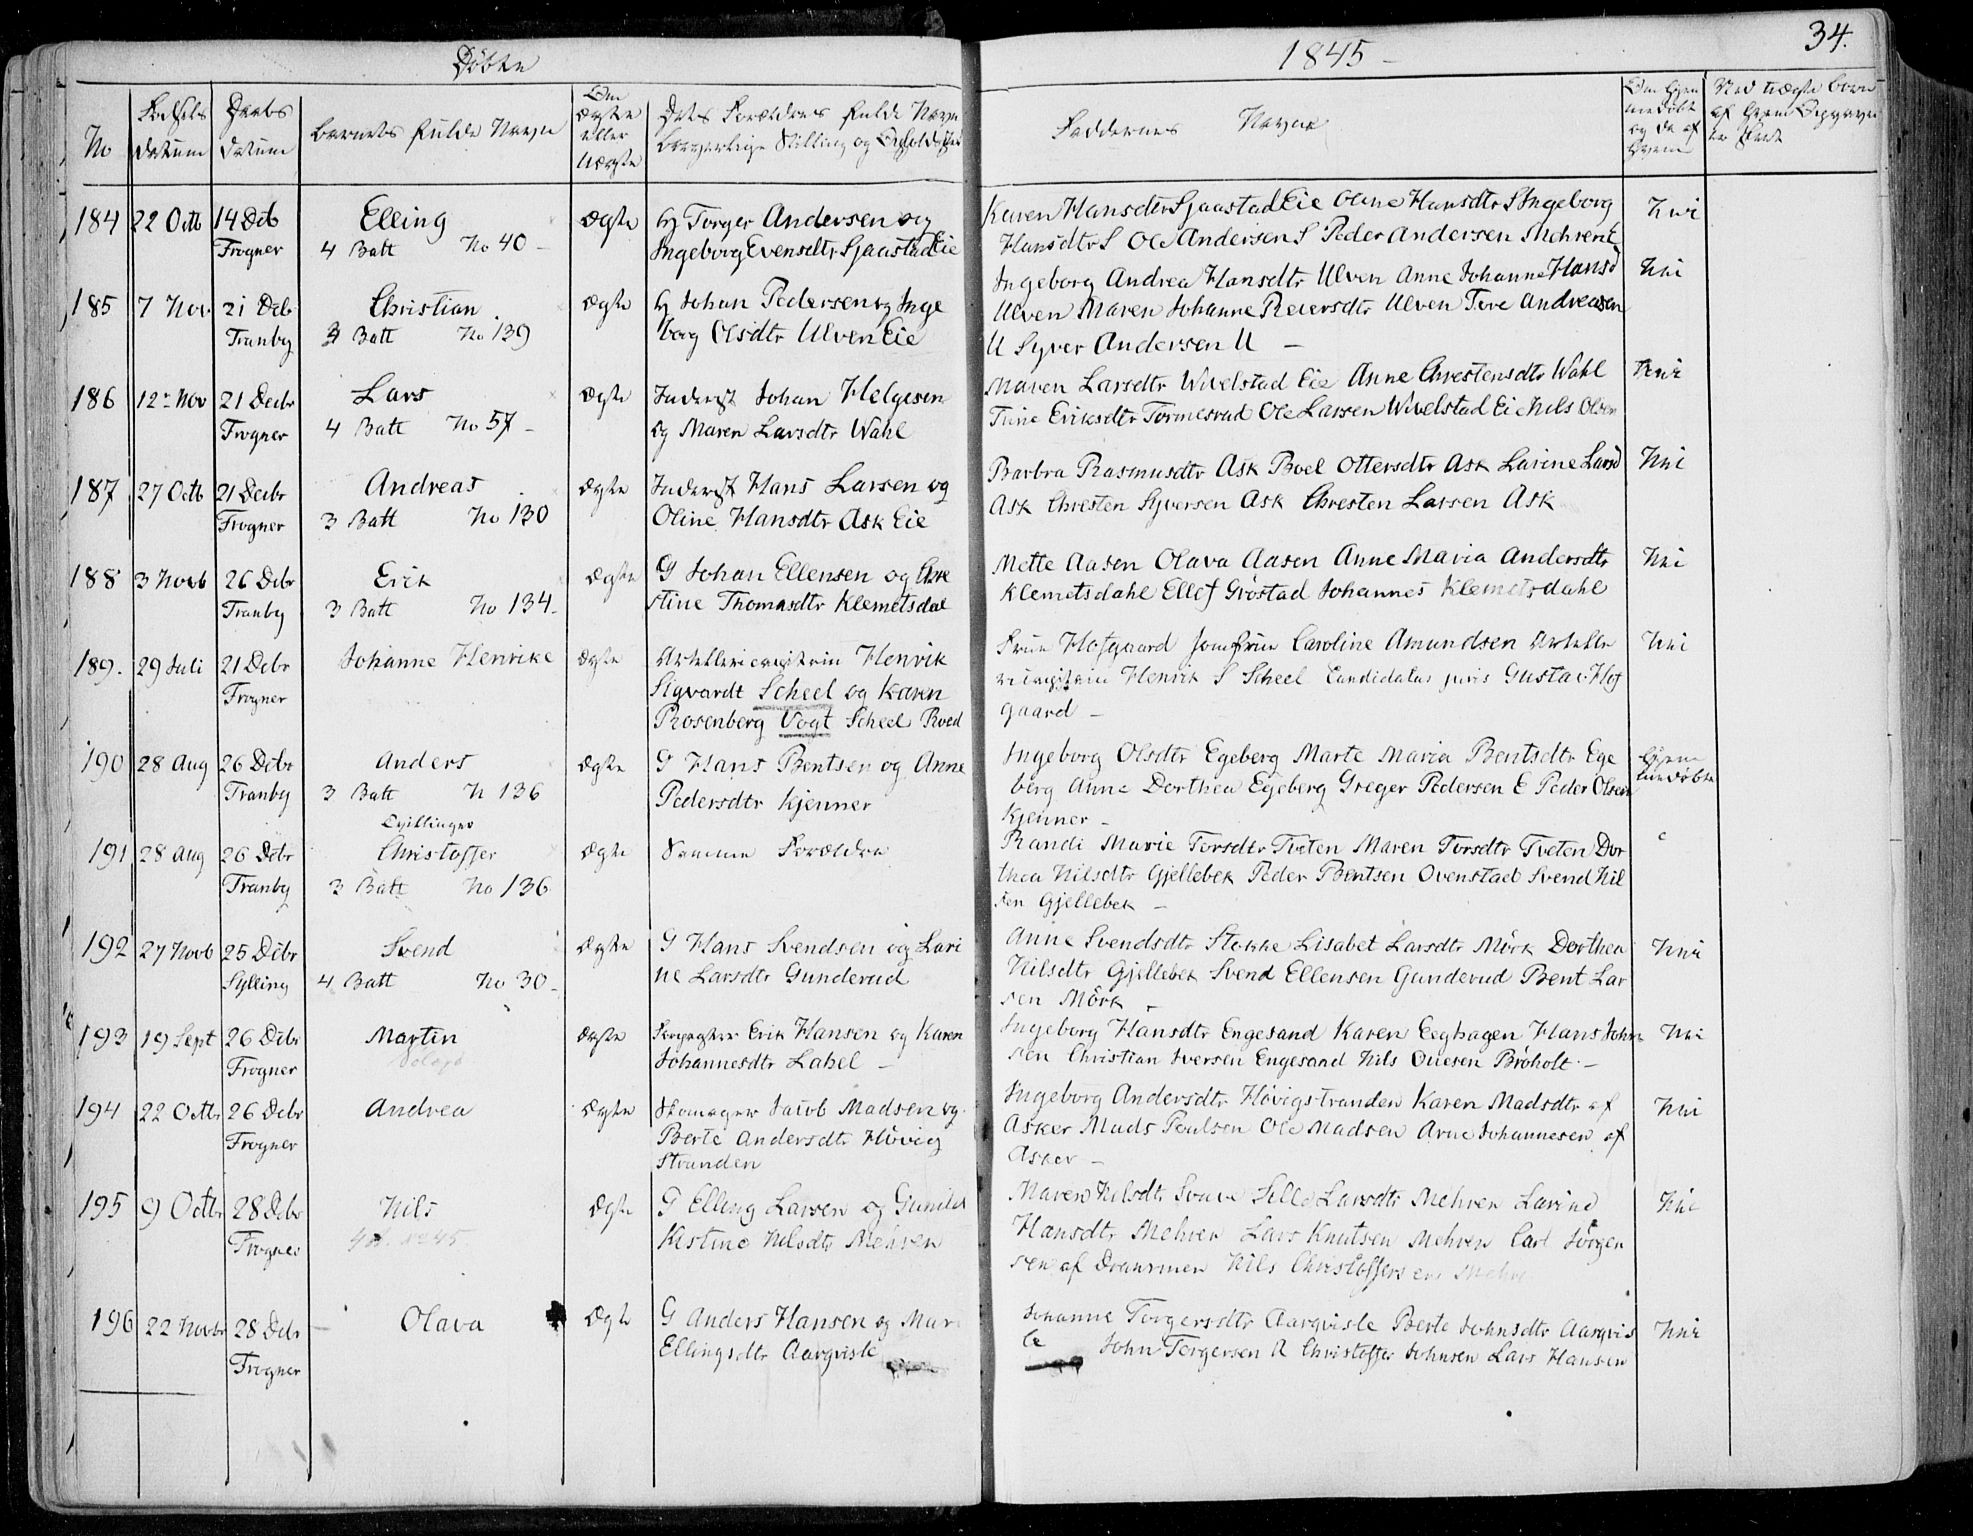 Døbte
1845
34.
No
Fødsels datum
Daabs datum
Barnets fulde Navn
Om ægte eller uægte
Dets Forældres fulde Navn
borgerlige Stilling og Opholdsted
Faddernes Navne
Om hjemmedøbt og da af hvem
184 22 Octb 14 Deb Elling ægte Gj Torger Andersen og
Frogner 4 Batt No 40 Ingeborg Evensdtr Sjaastad Eie
Karen Hansdtr Sjaastad Eie Oline Hansdtr S Ingeborg Nei
Hansdtr S Ole Andersen S Peder Andersen Mehren E
185 7 Nov 21 Deb Christian ægte Gj Johan Pedersen og Inge
Tranby 3 Batt No 139 borg Olsdtr Ulven Eie
Ingeborg Andrea Hansdtr Ulven Anne Johanne Hansd Nei
Ulven Maren Johanne Reiersdtr Ulven Tore Andreasen
U Syver Andersen U
186 12 Nov 21 Decbr Lars ægte Inderst Johan Helgesen
Frogner 4 Batt No 57 og Maren Larsdtr Wahl
Maren Larsdtr Wivelstad Eie Anne Chrestensdtr Wahl Nei
Trine Eriksdtr Tormesrud Ole Larsen Wivelstad Ei Nils Olsen
187 27 Octb 21 Decbr Andreas ægte Inderst Hans Larsen og
Frogner 3 Batt No 130 Oline Hansdtr Ask Eie
Barbra Rasmusdtr Ask Boel Ottersdtr Ask Larine Larsd Nei
Ask Chresten Syversen Ask Chresten Larsen Ask
188 3 Novb 26 Debr Erik ægte G Johan Ellensen og Chre
Tranby 3 Batt No 134 stine Thomasdtr Klemetsdal
Mette Aasen Olava Aasen Anne Maria Andersdtr Nei
Klemetsdahl Ellef Gröstad Johannes Klemetsdahl
189. 29 Juli 21 Debr Johanne Henrike ægte Artellericapitain Henrik
Frogner Sigvardt Scheel og Karen
Rosenberg Vogt Scheel Roed
Frue Hofgaard Jomfrue Caroline Amundsen Artelle Nei
ricapitain Henrik S Scheel Candidatus juris Gustav Hof
gaard
190 28 Aug 26 Debr Anders ægte G Hans Bentsen og Anne
Tranby 3 Batt N 136 Pedersdtr Kjenner
Tvillinger
Ingeborg Olsdtr Egeberg Marte Maria Bentsdtr Ege hjemmedøbte
berg Anne Dorthea Egeberg Greger Pedersen E Peder Olsen
Kjenner
191 28 Aug 26 Debr Christoffer ægte Samme Forældre
Tranby 3 Batt No 136
Randi Marie Torsdtr Tveten Maren Torsdtr Tveten Dor
thea Nilsdtr Gjellebek Peder Bentsen Ovenstad Svend Nil
sen Gjellebek
192 27 Novb 25 Debr Svend ægte G Hans Svendsen og Lari
Sylling 4 Batt No 30 ne Larsdtr Gunderud
Anne Svendsdtr Stokke Lisabet Larsdtr Mörk Dorthea Nei
Nilsdtr Gjellebek Svend Ellensen Gunderud Bent Lar
sen Mörk
193 19 Sept 26 Debr Martin ægte Forpagter Erik Hansen og Karen
Frogner Johannesdtr Lahel
Ingeborg Hansdtr Engesand Karen Eeghagen Hans John Nei
sen Christian Iversen Engesand Nils Ouesen Bröholt
194 22 Octbr 26 Debr Andrea ægte Skomager Jacob Madsen og
Frogner Berte Andersdtr Hövig
Stranden
Ingeborg Andersdtr Hövigstranden Karen Madsdtr af Nei
Asker Mads Poulsen Ole Madsen Arne Johannesen af
Asker
195 9 Octbr 28 Debr Nils ægte G Elling Larsen og Gunild
Frogner 4 B. No 45. Kistine Nilsdtr Mehren
Maren Nilsdtr Sille Larsdtr Mehren Larine Nei
Hansdtr Mehren Lars Knutsen Mehren Carl Jörgen
sen af Drammen Nils Christoffersen Mehr
196 22 Novbr 28 Debr Olava ægte G Anders Hansen og Mar
Frogner Ellingsdtr Aarqvisle
Johanne Torgersdtr Aarqvisle Berte Johnsdtr Aarqvis Nei
le John Torgersen A Christoffer Johnsen Lars Hansen